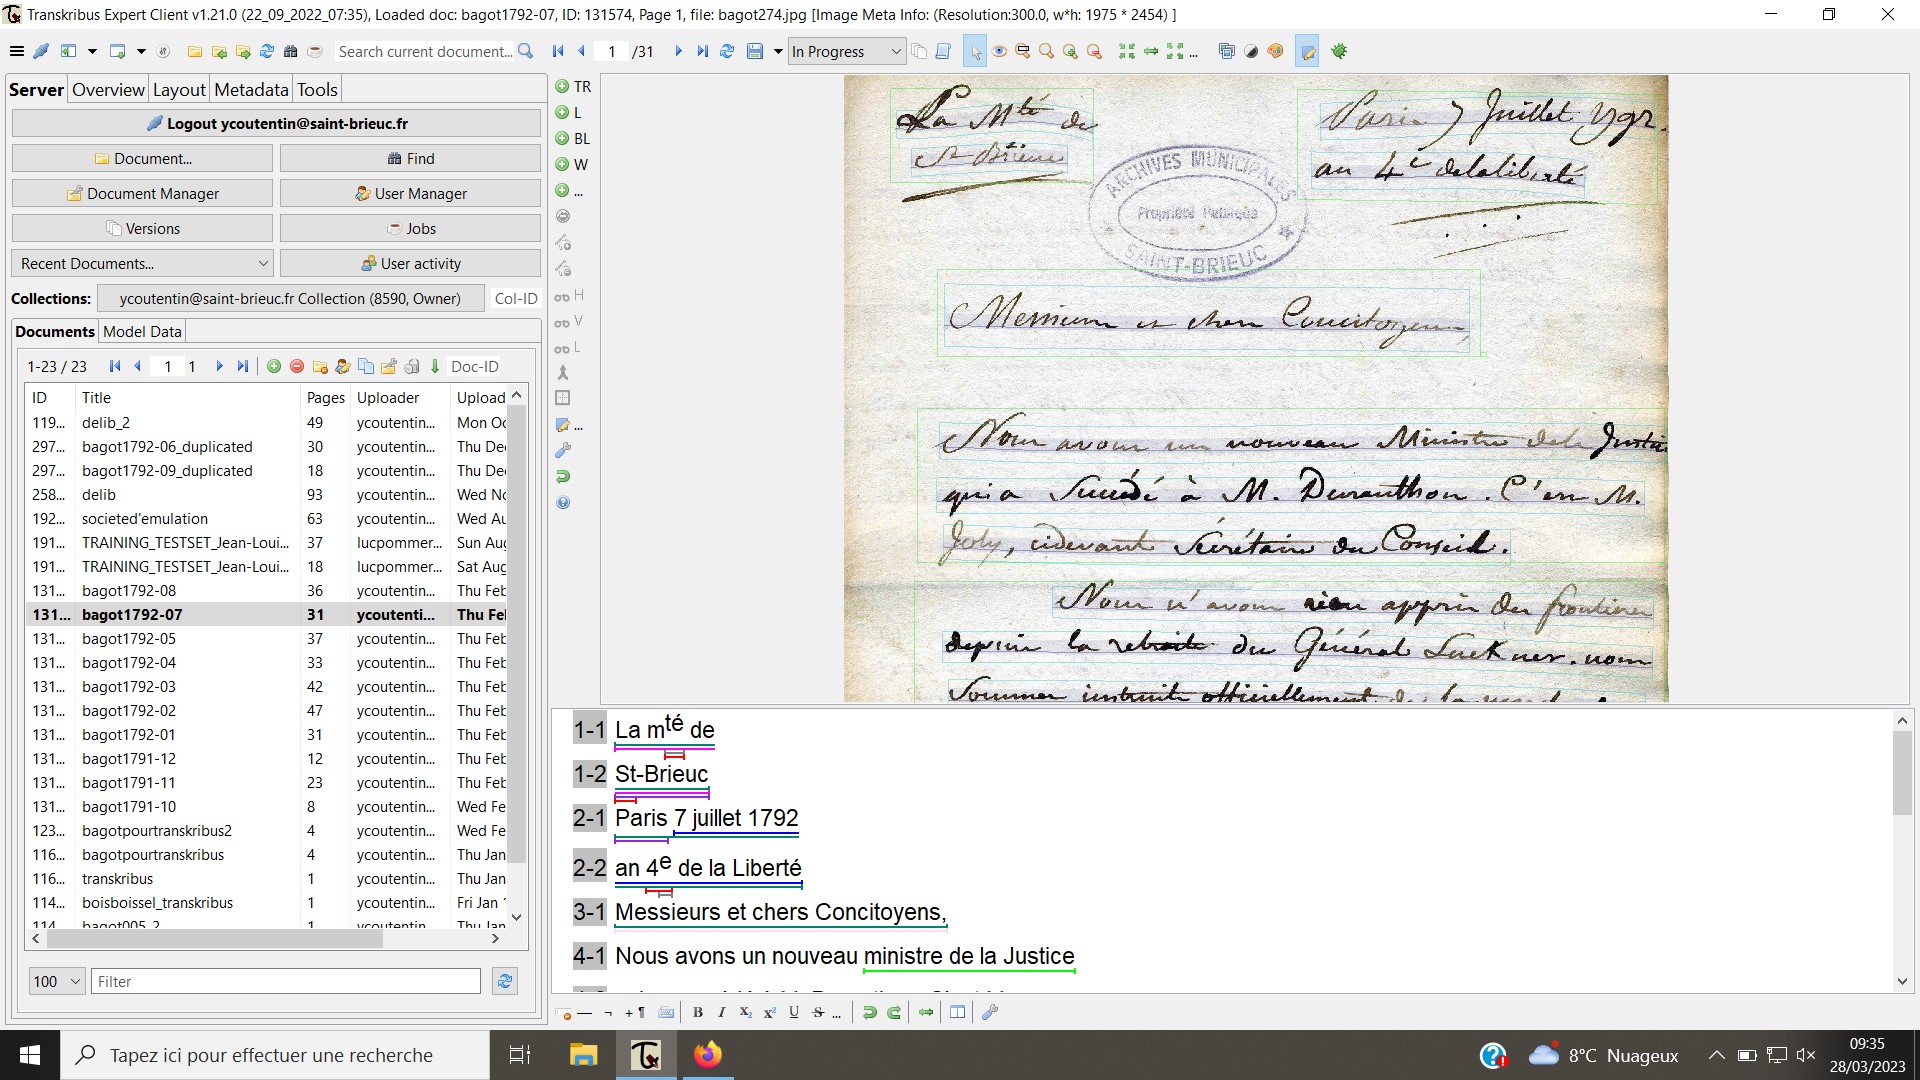 Transkribus Expert Client v1.21.0 (22_09_2022_07:35), Loaded doc: bagot1792-07, ID: 131574, Page 1, file: bagot274.jpg [Image Meta Info: (Resolution:300.0, w*h: 1975 * 2454) ]
Search current document... 1 /31 In Progress
Server Overview Layout Metadata Tools
Logout ycoutentin@saint-brieuc.fr
Document... Find
Document Manager User Manager
Versions Jobs
Recent Documents... User activity
Collections: ycoutentin@saint-brieuc.fr Collection (8590, Owner) Col-ID
Documents Model Data
1-23 / 23 1 1 Doc-ID
ID Title Pages Uploader Upload
119... delib_2 49 ycoutentin... Mon Oc
297... bagot1792-06_duplicated 30 ycoutentin... Thu De
297... bagot1792-09_duplicated 18 ycoutentin... Thu De
258... delib 93 ycoutentin... Wed No
192... societed'emulation 63 ycoutentin... Wed Au
191... TRAINING_TESTSET_Jean-Loui... 37 lucpommer... Sun Aug
191... TRAINING_TESTSET_Jean-Loui... 18 lucpommer... Sat Aug
131... bagot1792-08 36 ycoutentin... Thu Feb
131... bagot1792-07 31 ycoutenti... Thu Fel
131... bagot1792-05 37 ycoutentin... Thu Feb
131... bagot1792-04 33 ycoutentin... Thu Feb
131... bagot1792-03 42 ycoutentin... Thu Feb
131... bagot1792-02 47 ycoutentin... Thu Feb
131... bagot1792-01 31 ycoutentin... Thu Feb
131... bagot1791-12 12 ycoutentin... Thu Feb
131... bagot1791-11 23 ycoutentin... Thu Feb
131... bagot1791-10 8 ycoutentin... Wed Fe
123... bagotpourtranskribus2 4 ycoutentin... Wed Fe
116... bagotpourtranskribus 4 ycoutentin... Thu Jan
116... transkribus 1 ycoutentin... Thu Jan
114... boisboissel_transkribus 1 ycoutentin... Fri Jan
114 bagot005_2 1 ycoutentin... Thu Jan
100 Filter
TR
L
BL
W
...
H
V
L
...
La Mté de
St Brieuc
Paris 7 Juillet 1792.
an 4e de la liberté
ARCHIVES MUNICIPALES
Propriété Publique
SAINT-BRIEUC
Messieurs et chers Concitoyens,
Nous avons un nouveau Ministre de la Justice
qui a succédé à M. Duranthon. C'est M.
Joly, cidevant Sécrétaire du Conseil.
Nous n'avons rien appris des frontieres
depuis la retraite du Général Luckner. nous
Sommes instruits officiellement
1-1 La mté de
1-2 St-Brieuc
2-1 Paris 7 juillet 1792
2-2 an 4e de la Liberté
3-1 Messieurs et chers Concitoyens,
4-1 Nous avons un nouveau ministre de la Justice
B I X₂ X² U S ...
Tapez ici pour effectuer une recherche
8°C Nuageux
09:35
28/03/2023